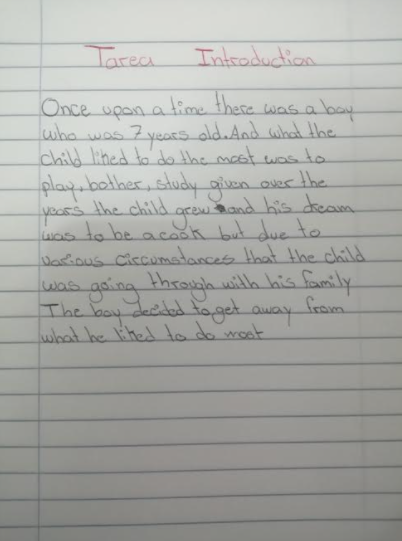 Tarea Introduction
Once upon a time there was a boy
who was 7 years old. And what the
child liked to do the most was to
play, bother, study given over the
years the child grew and his dream
was to be a cook but due to
various circumstances that the child
was going through with his family
The boy decided to get away from
what he liked to do most